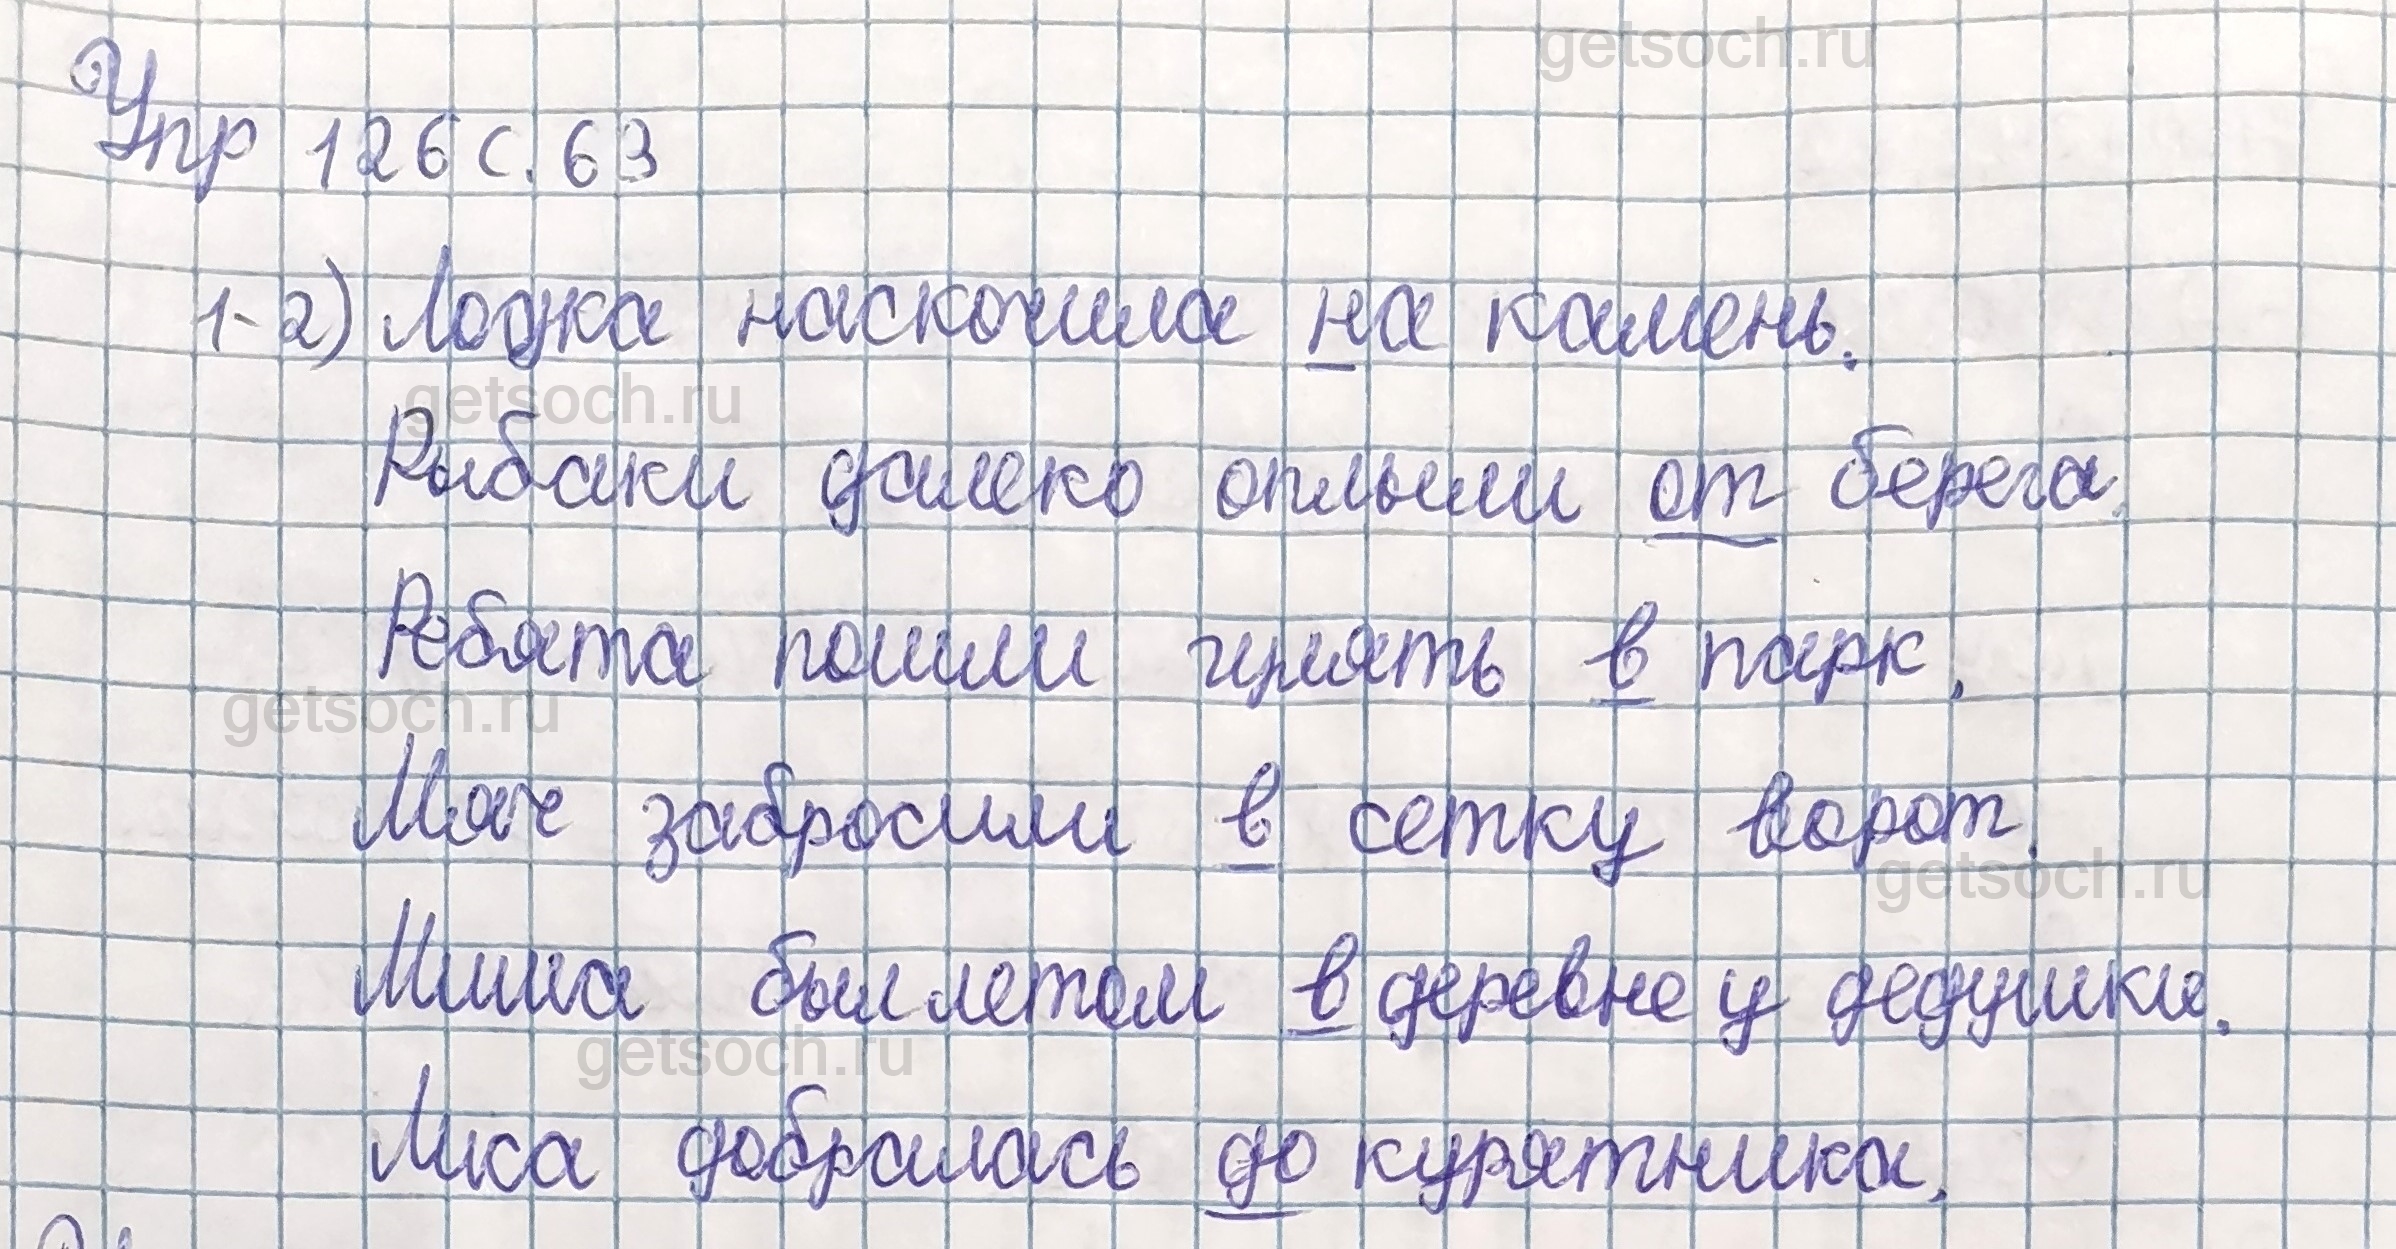 getsoch.ru
Упр 126 с. 63
1-2) Лодка наскочила на камень.
getsoch.ru
Рыбаки далеко оплыли от берега.
Ребята пошли гулять в парк.
getsoch.ru
Мяч забросили в сетку ворот.
getsoch.ru
Миша был летом в деревне у дедушки.
getsoch.ru
Лиса добралась до курятника.